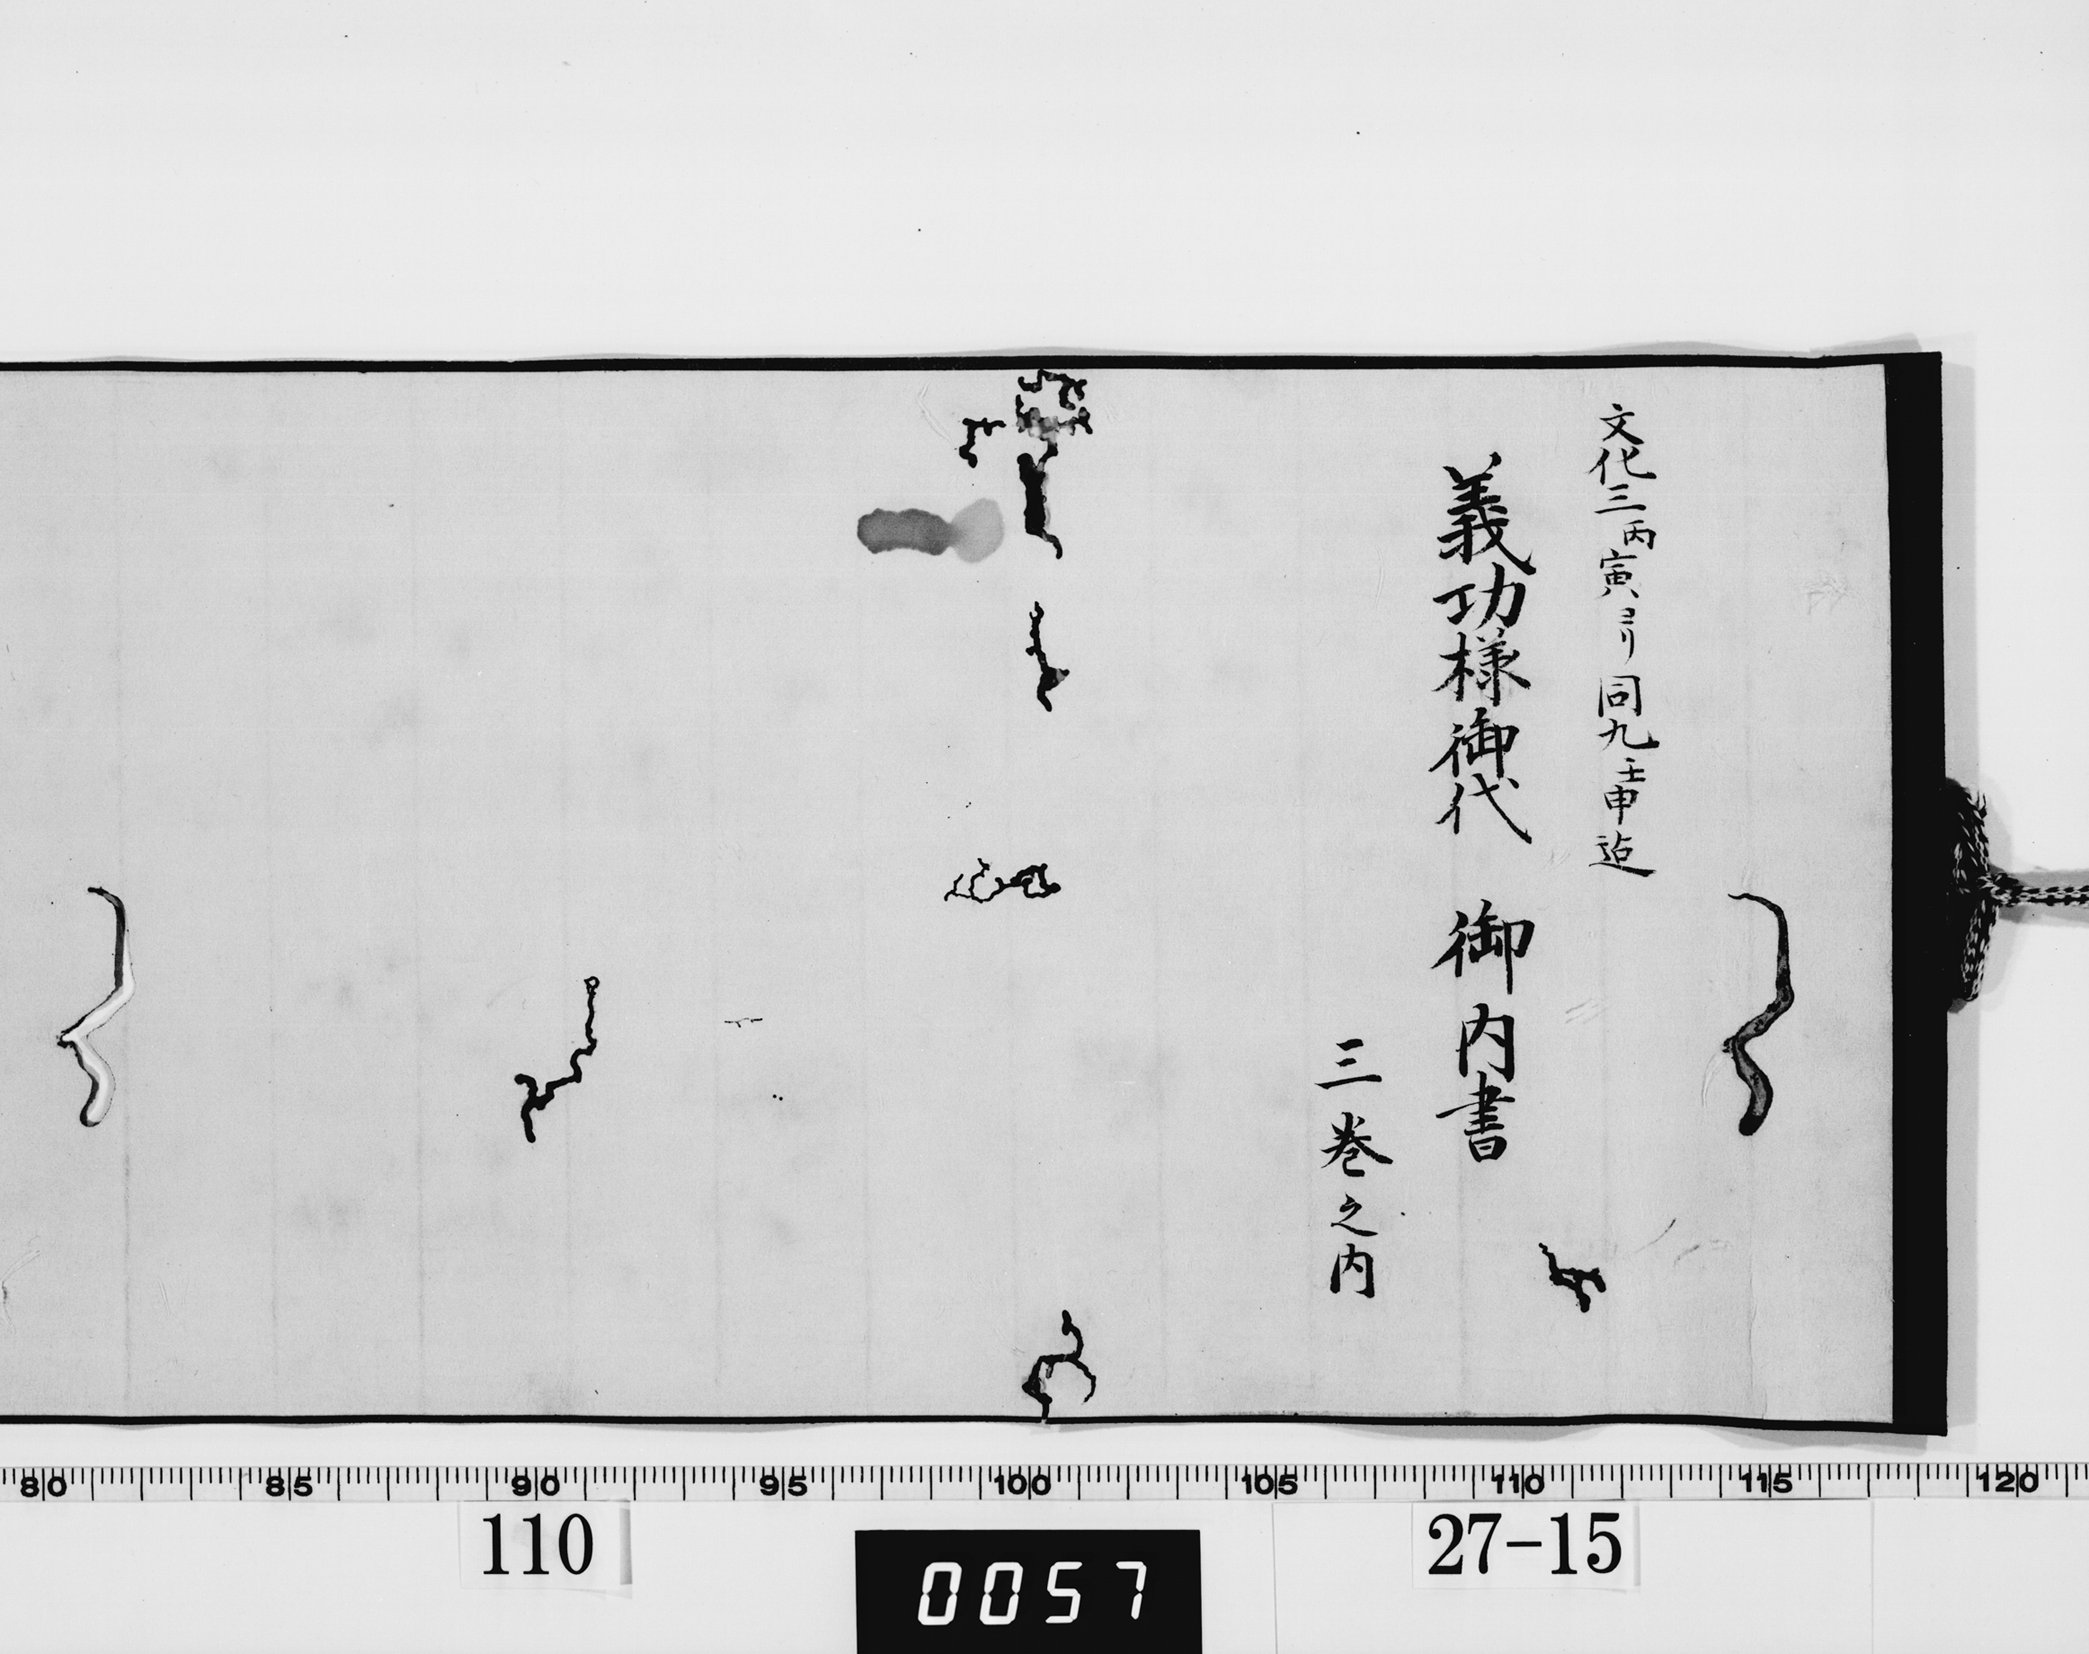 文化三丙寅ヨリ同九壬申迠
義功様御代 御内書
三巻之内
80 85 90 95 100 105 110 115 120
110
0057
27-15